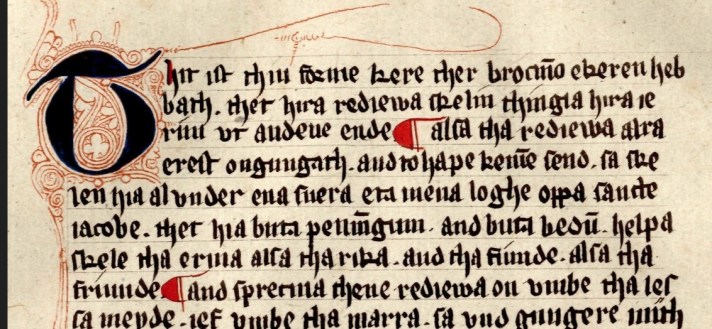 Thit ist thiu forme kere ther brocmēn ekeren heb
bath. thet hira rediewa skelin thingia hira ie
riuu vt andeue ende ¶ alsa tha rediewa alra
erest ongungath. and to hape kemē send. sa ske
len hia al vnder ena suera eta mena loghe oppa sancte
iacobe. thet hia buta pennīgum. and buta bedū. helpa
skele tha erma alsa tha rika. and tha fiunde. alsa tha
friunde. ¶ and sprecma thene rediewa on vmbe tha les
sa meyde. ief vmbe tha marra. sa vnd gungere mith